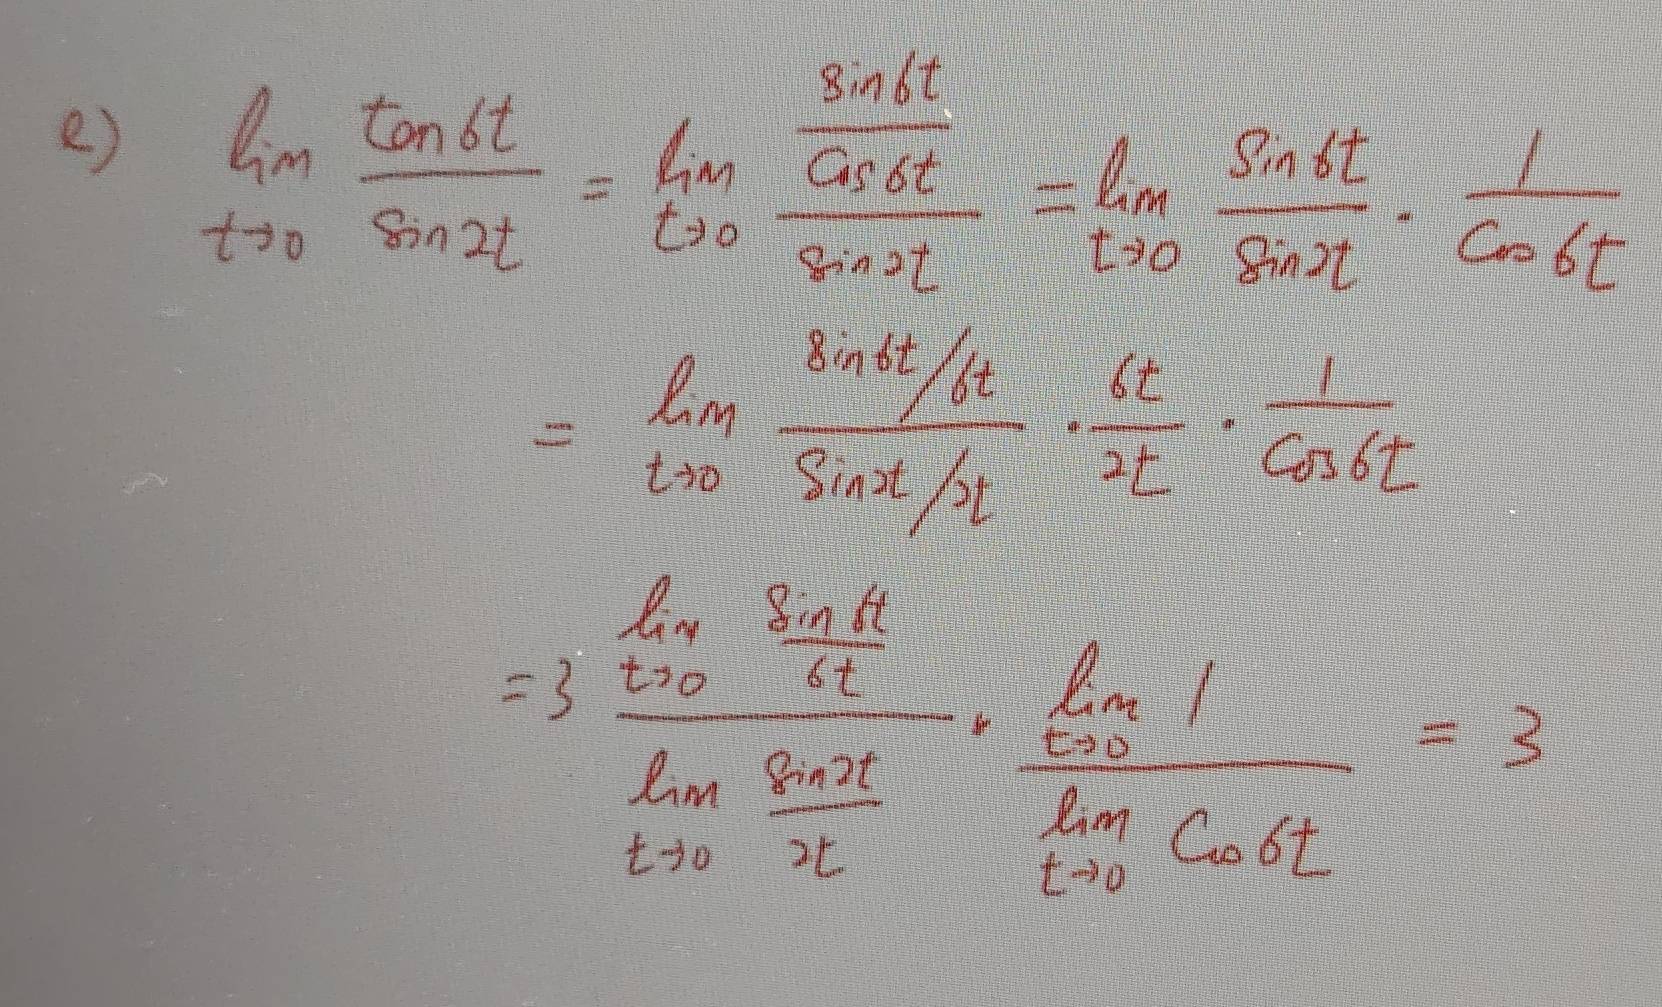 e) lim t→0 tan6t / sin2t = lim t→0 (sin6t / cos6t) / sin2t = lim t→0 sin6t / sin2t · 1 / cos6t
= lim t→0 (sin6t/6t) / (sin2t/2t) · 6t / 2t · 1 / cos6t
= 3 (lim t→0 sin6t / 6t) / (lim t→0 sin2t / 2t) · (lim t→0 1) / (lim t→0 cos6t) = 3